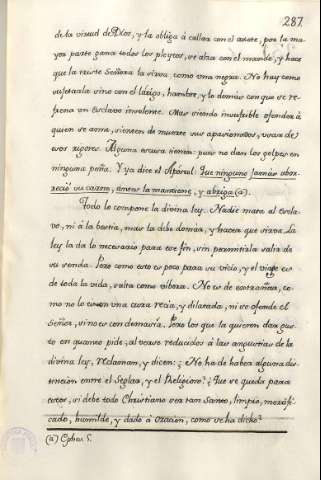 287
de la virtud de Dios, y la obliga à callar con el azote, por la ma-
yor parte gana todos los pleytos, se alza con el mando, y hace
que la triste Señora la sirva, como una negra. No hay como
sujetarla sino con el látigo, hambre, y lo demàs con que se re-
frena un esclavo insolente. Mas siendo insufrible ofender à
quien se ama, sienten de muerte sus apasionados, usar de
esos rigores. Alguna escusa tienen: pues no dan los golpes en
ninguna peña. Y ya dice el Apostol: Que ninguno jamás abor-
reció su carne, antes la mantiene, y abriga (a).
Todo lo compone la divina ley. Nadie mate al escla-
vo, ni á la bestia, mas la debe domar, y hacer que sirva. La
ley la da lo necesario para ese fin, sin permitirla salta de
su senda. Pero como esto es poco para su vicio, y el viage es
de toda la vida, salta como vibora. No es de estrañar, co-
mo no lo es en una cura recia, y dilatada, ni se ofende el
Señor, si no es con demasía. Pero los que la quieren dar gus-
to en quanto pide, al verse reducidos à las angustias de la
divina ley, reclaman, y dicen: ¿No ha de haber alguna dis-
tincion entre el Seglar, y el Religioso? ¿Que se queda para
estos, si debe todo Christiano ser tan Santo, limpio, mortifi-
cado, humilde, y dado à oracion, como se ha dicho?
(a) Ephes. 5.